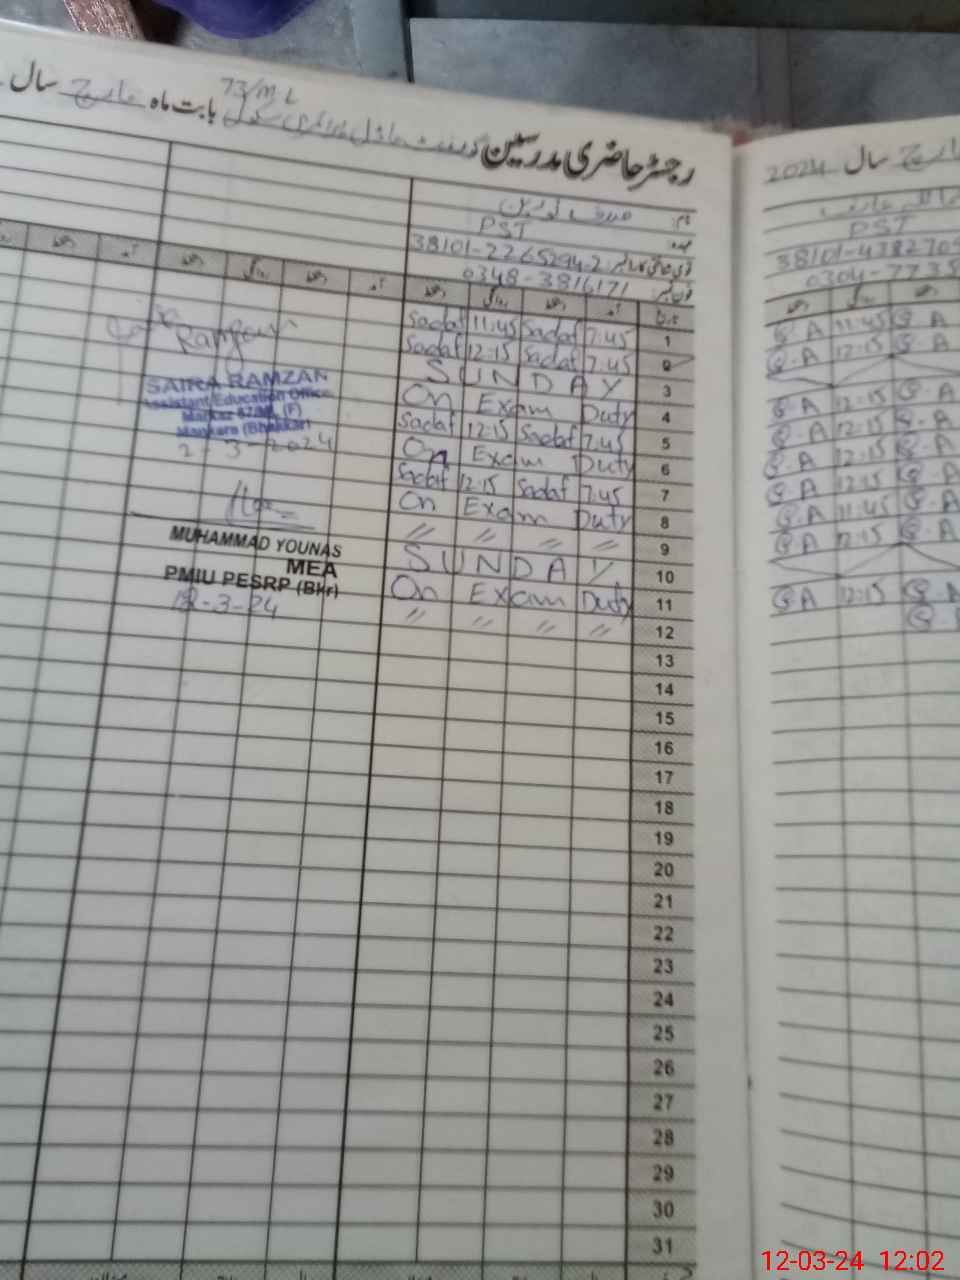 73/ML
رجسٹر حاضری مدرسین گورنمنٹ ماڈل پرائمری سکول بابت ماہ مارچ سال
نام:
صدف نورین
عہدہ:
PST
38101-2265294-2
فون نمبر:
0348-3816171
آمد دستخط روانگی دستخط آمد دستخط روانگی دستخط آمد دستخط
1 7:45 Sadaf 11:45 Sadaf
2 7:45 Sadaf 12:15 Sadaf
3 SUNDAY
4 On Exam Duty
5 7:45 Sadaf 12:15 Sadaf
6 On Exam Duty
7 7:45 Sadaf 12:15 Sadaf
8 On Exam Duty
9 〃 〃 〃 〃
10 SUNDAY
11 On Exam Duty
12 〃 〃 〃 〃
13
14
15
16
17
18
19
20
21
22
23
24
25
26
27
28
29
30
31
Ramzan
SAIRA RAMZAN
Assistant Education Officer
Markaz 47/ML (F)
Mankera (Bhakkar)
2-3-2024
MUHAMMAD YOUNAS
MEA
PMIU PESRP (Bkr)
12-3-24
مارچ سال 2024
PST
38101-4382705
0304-7735
Q.A 11:45 Q.A
Q.A 12:15 Q.A
Q.A 12:15 Q.A
Q.A 12:15 Q.A
Q.A 12:15 Q.A
Q.A 12:15 Q.A
Q.A 11:45 Q.A
Q.A 12:15 Q.A
Q.A 12:15 Q.A
12-03-24 12:02